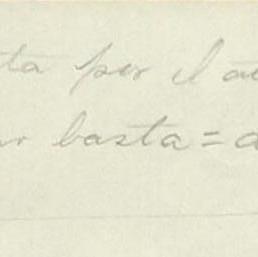 ta per l a
r basta = a